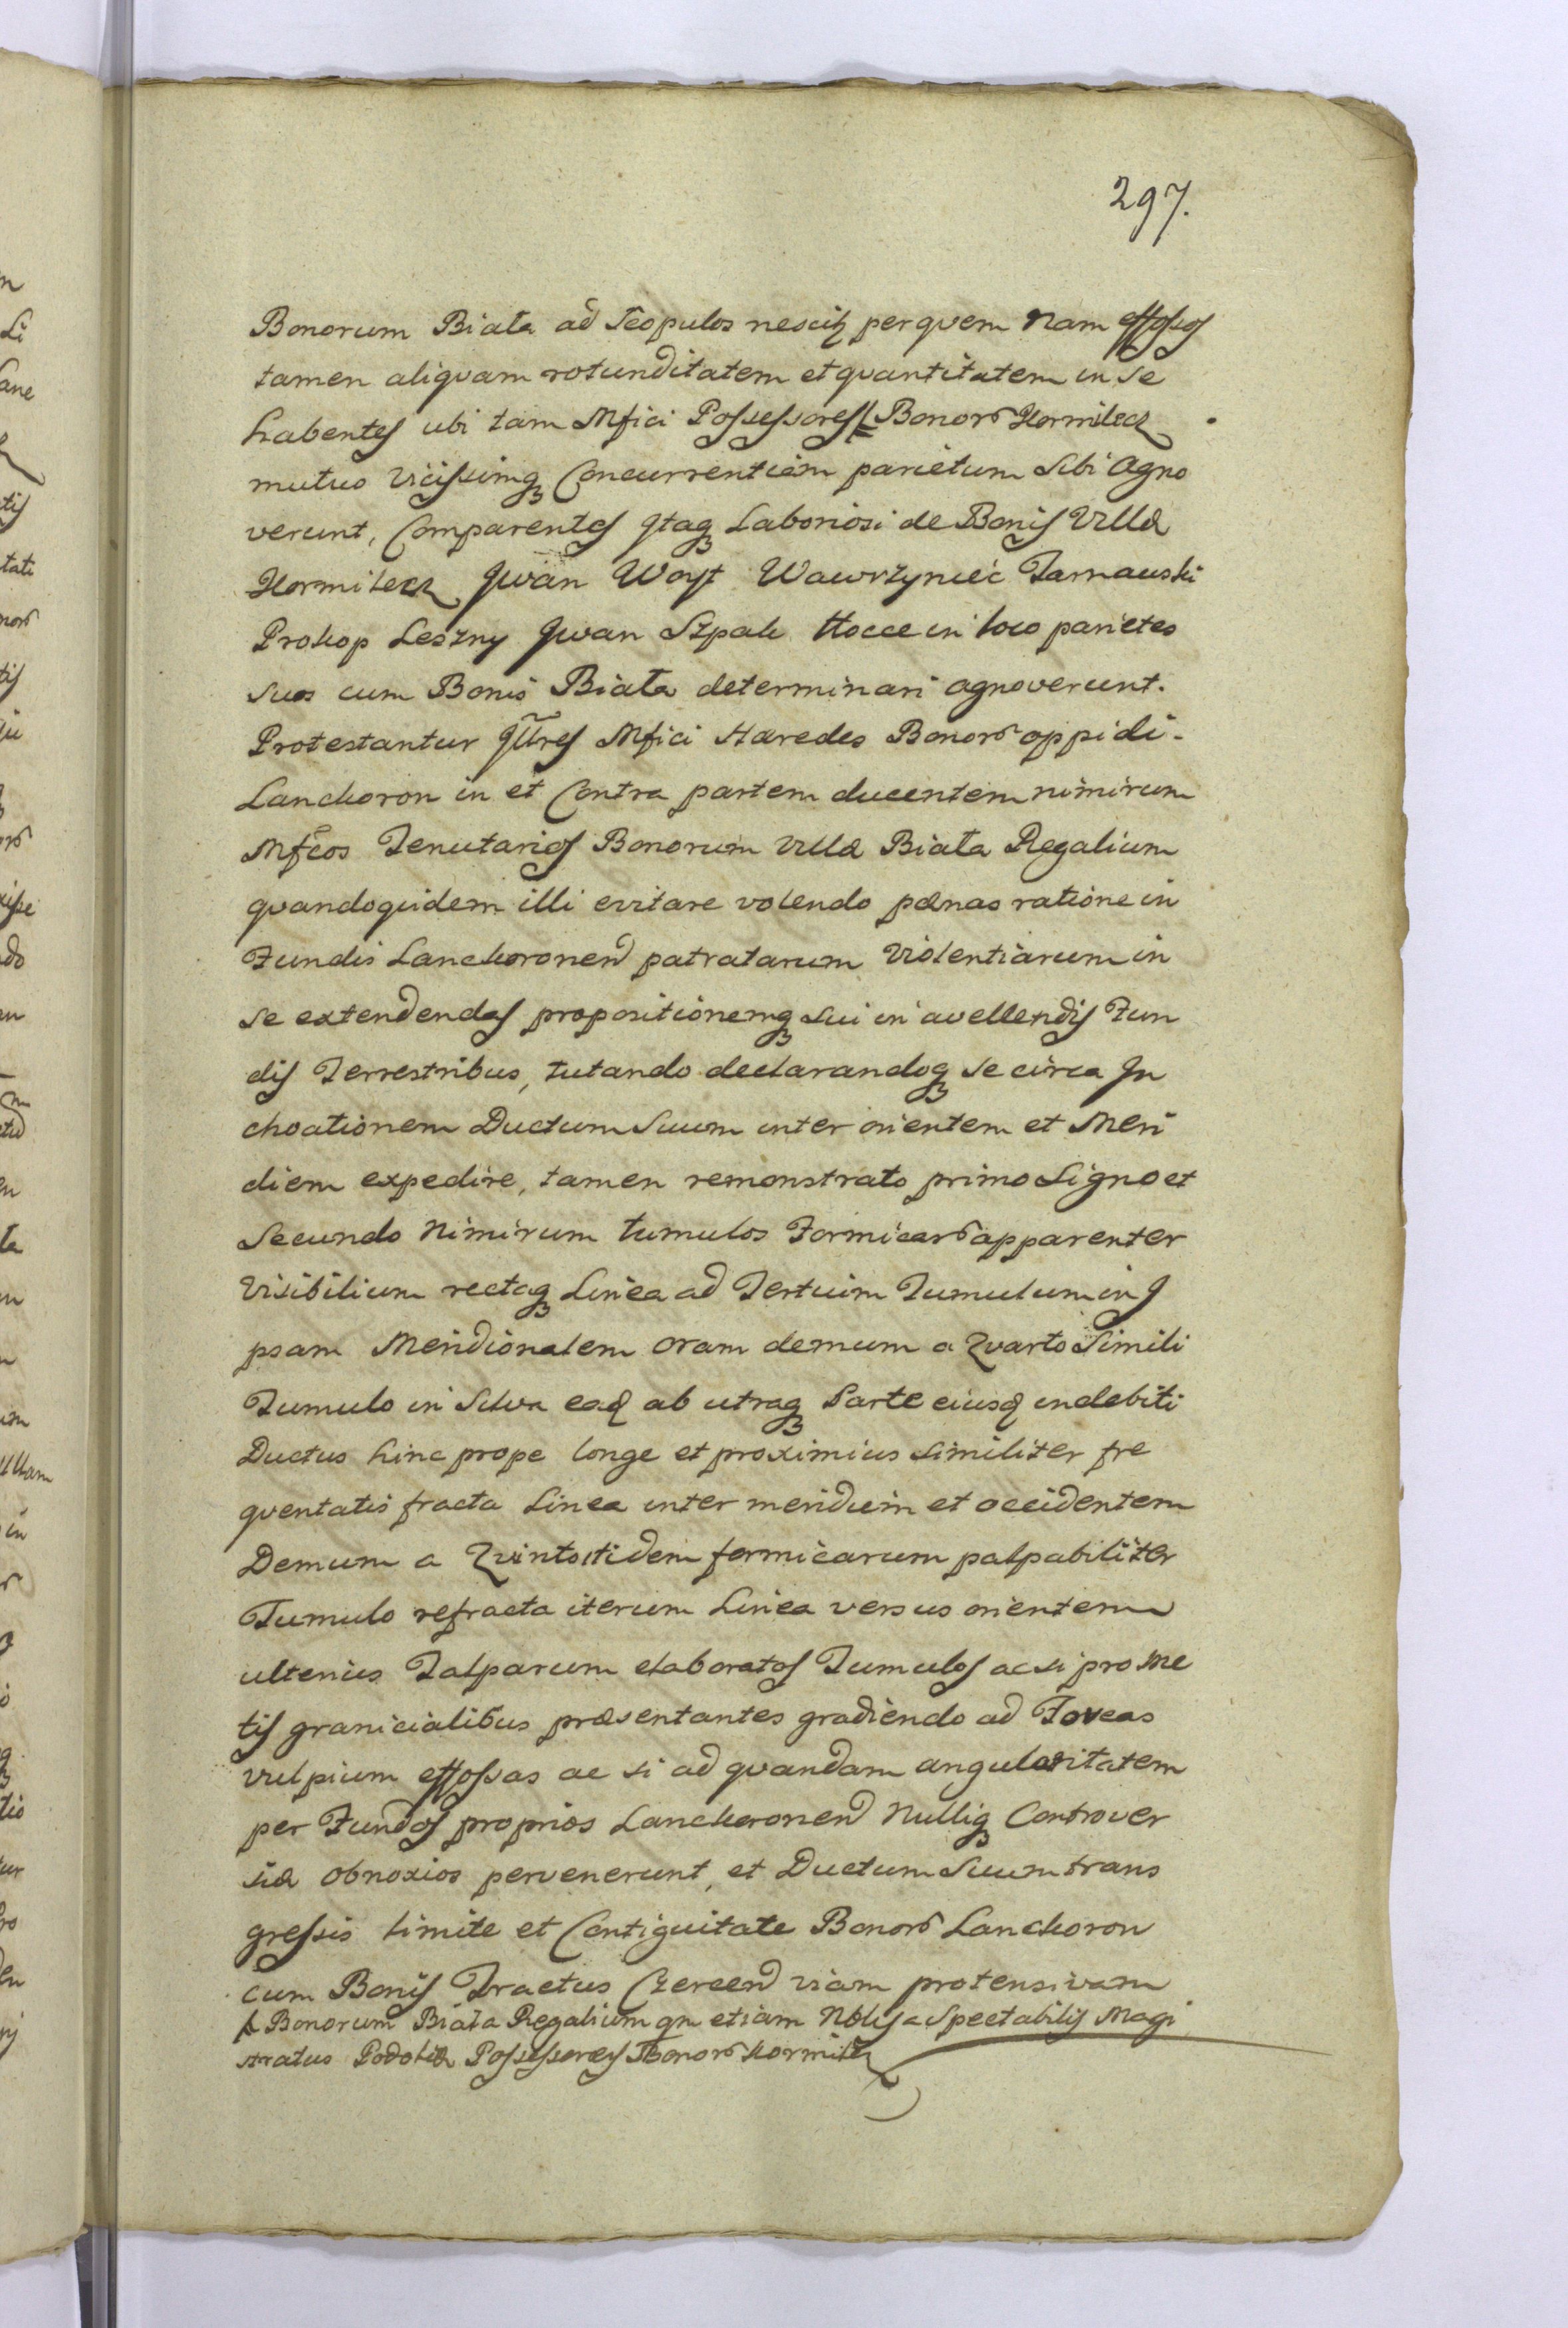 297.
Bonorum Biała ad Scopulos nescitz per quem Nam effossos
tamen aliquam rotunditatem et quantitatem in se
habentes ubi tam Mfici Possessores Bonorꝝ Hormilecz
mutuo vicissimqꝫ Concurrentiam parietum Sibi Agno
verunt, Comparentes Itaqꝫ Laboriosi de Bonis Villæ
Hormilecz Iwan Woyt Wawrzyniec Tarnauski
Prokop Leszny Iwan Szpak Hocce in loco parietes
suos cum Bonis Biała determinari agnoverunt.
Protestantur Illres Mfici Hæredes Bonorꝝ oppidi
Lanckoron in et Contra partem ducentem nimirum
Mfcos Tenutarios Bonorum Villæ Biała Regalium
quandoquidem illi evitare volendo pænas ratione in
Fundis Lanckoronen patratarum Violentiarum in
se extendendas propositionemqꝫ sui in avellendis Fun
dis Terrestribus, tutando declarandoqꝫ se circa In
choationem Ductum Suum inter orientem et Meri
diem expedire, tamen remonstrato primo Signo et
Secundo Nimirum tumulos Formicarꝝ apparenter
Visibilium rectaqꝫ Linea ad Tertium Tumulum in I
psam Meridionalem oram demum a Quarto Simili
Tumulo in Silva eadꝫ ab utraqꝫ Parte eiusdꝫ indebiti
Ductus hinc prope longe et proximius similiter fre
quentatis fracta Linea inter meridiem et occidentem
Demum a Quinto itidem formicarum palpabiliter
Tumulo refracta iterum Linea versus orientem
ulterius Talparum elaboratos Tumulos ac si pro Me
tis granicialibus præsentantes gradiendo ad Foveas
vulpium effossas ac si ad quandam angularitatem
per Fundos proprios Lanckoronen Nulliqꝫ Controver
siæ obnoxios pervenerunt, et Ductum Suum trans
gressis limite et Contiguitate Bonorꝝ Lanckoron
cum Bonis Tractus Czercen viam protensivam
Bonorum Biała Regalium qm etiam Nblis a Spectabilis Magi
stratus Podoliæ Possessores Bonorꝝ Hormilcz